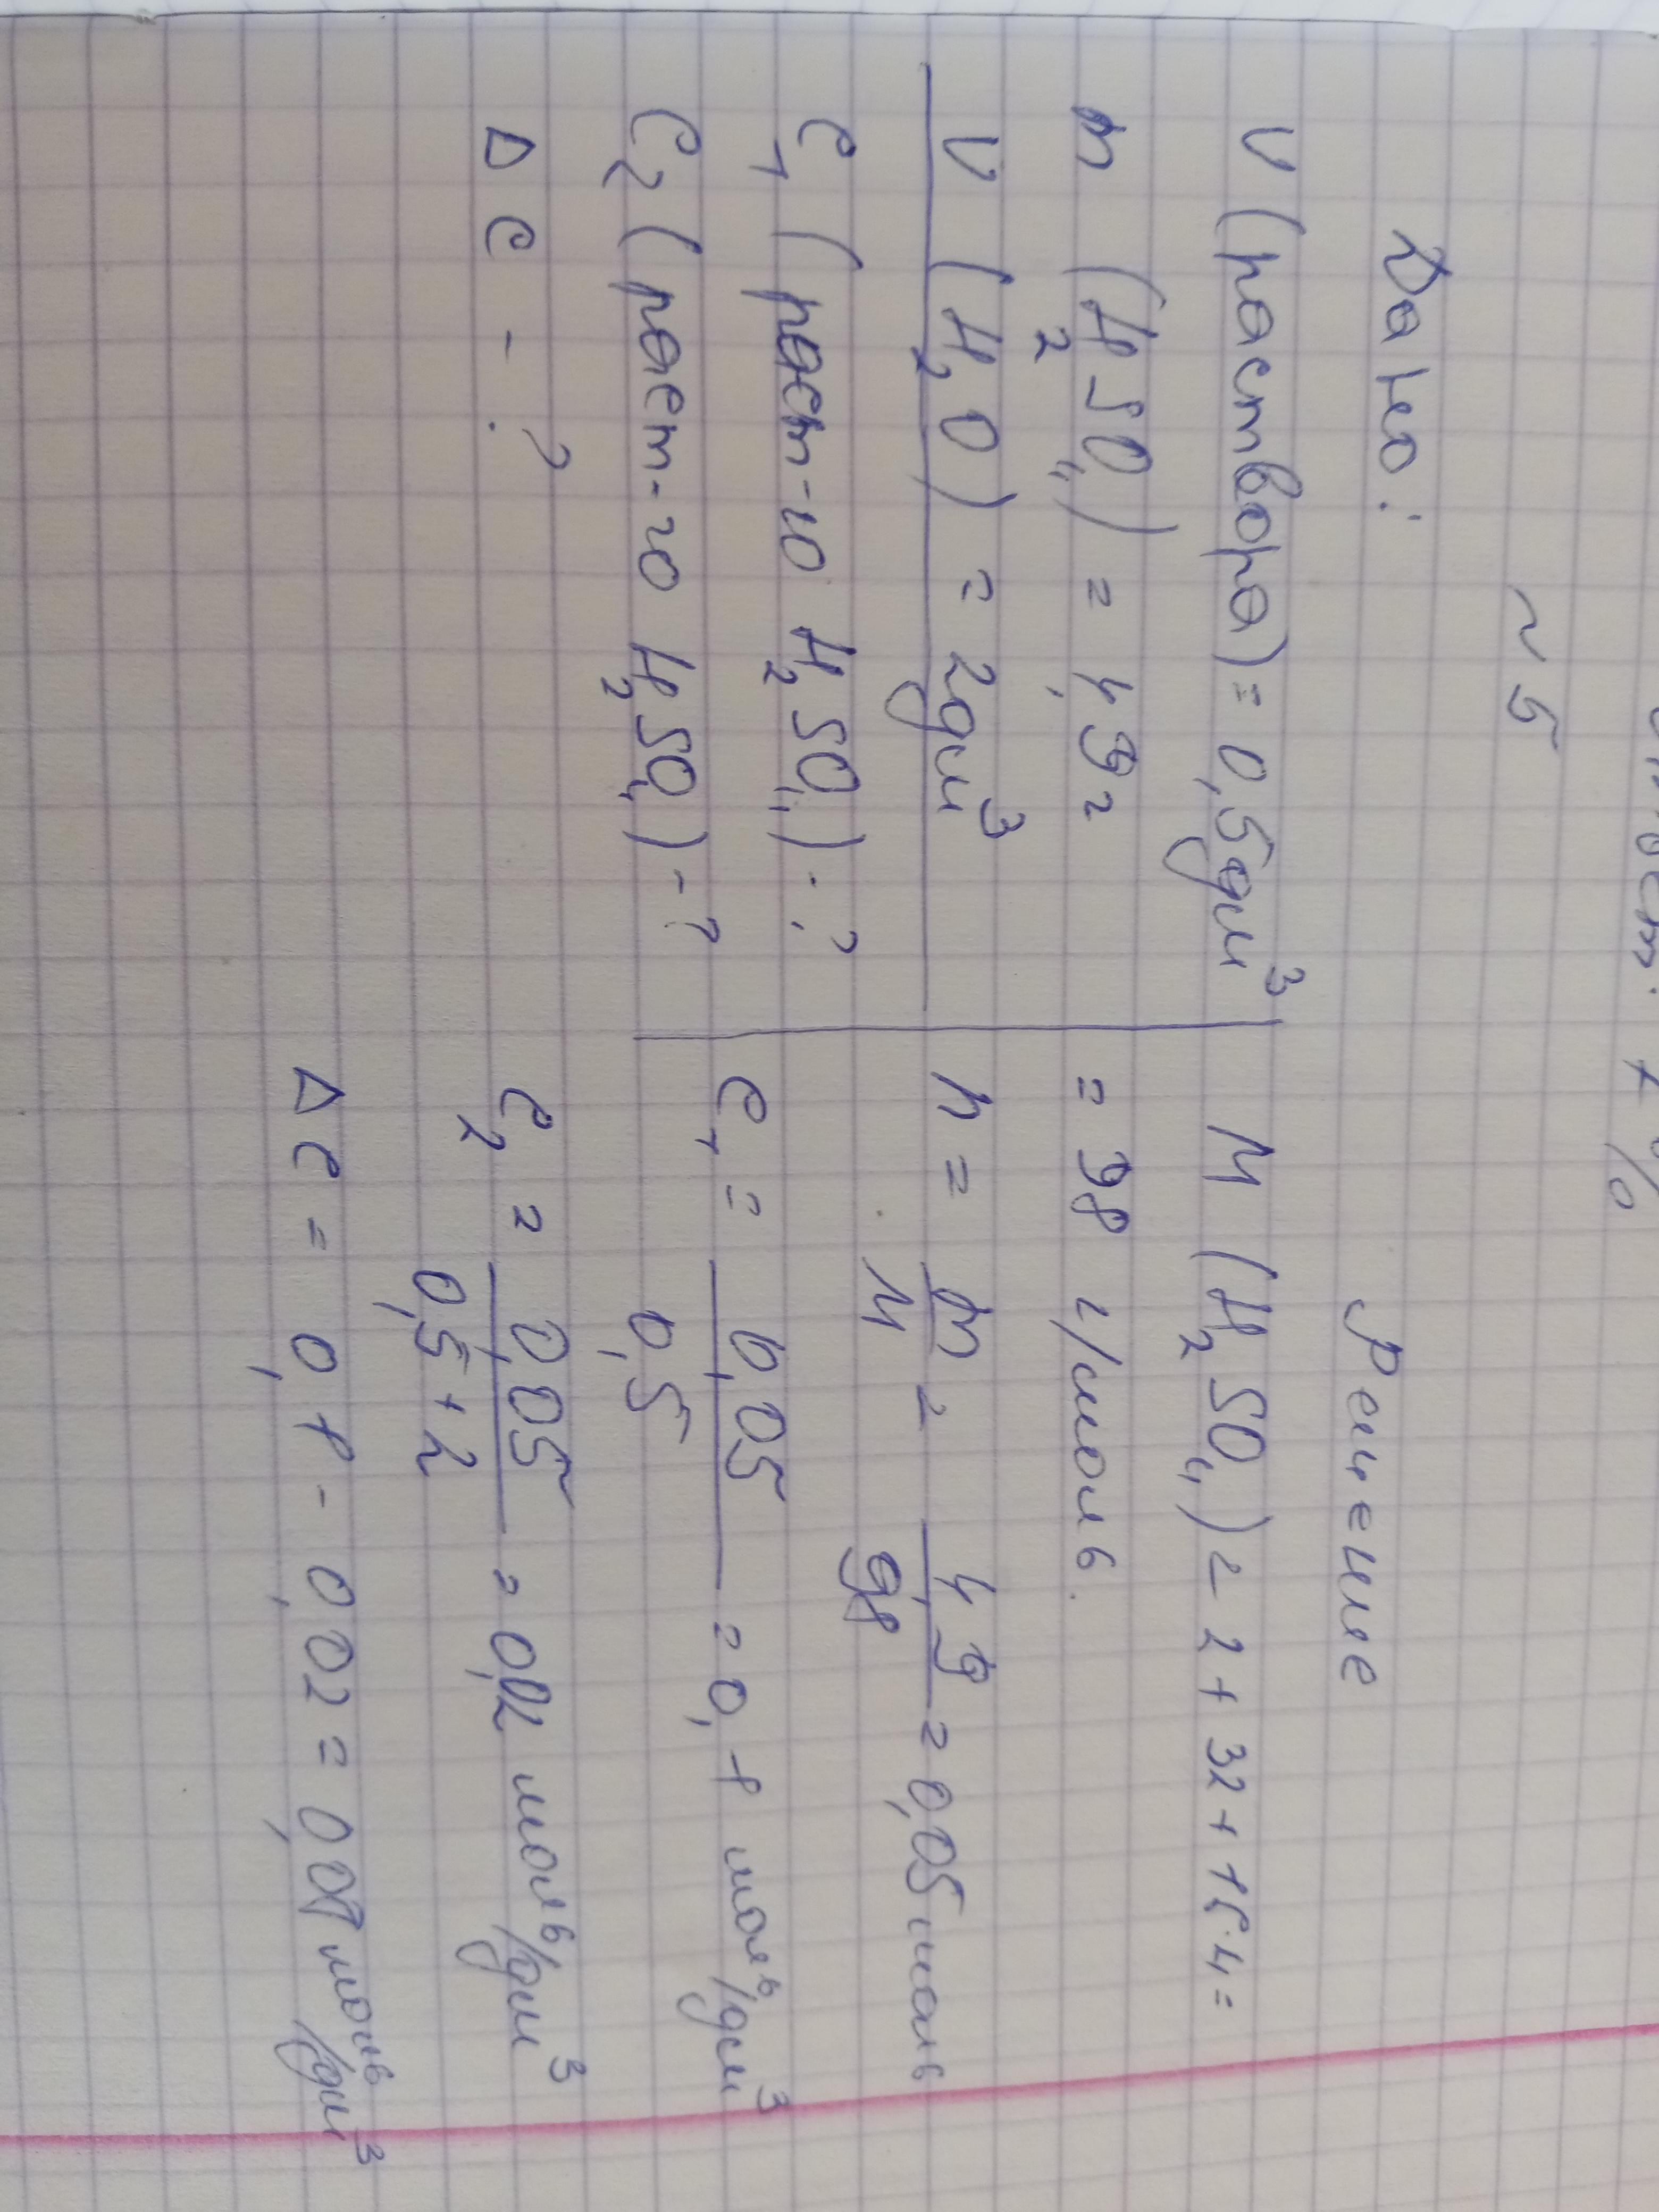 Ответ: 1%
~ 5
Дано:
V (раствора) = 0,5дм³
m (H₂SO₄) = 4,9г
V (H₂O) = 2дм³
C₁ (раст-ю H₂SO₄) - ?
C₂ (раст-го H₂SO₄) - ?
Δ C - ?
Решение
M (H₂SO₄) = 2 + 32 + 16·4 =
= 98 г/моль.
n = m/M = 4,9/98 = 0,05моль
C₁ = 0,05/0,5 = 0,1 моль/дм³
C₂ = 0,05/0,5+2 = 0,02 моль/дм³
Δ C = 0,1 - 0,02 = 0,08 моль/дм³